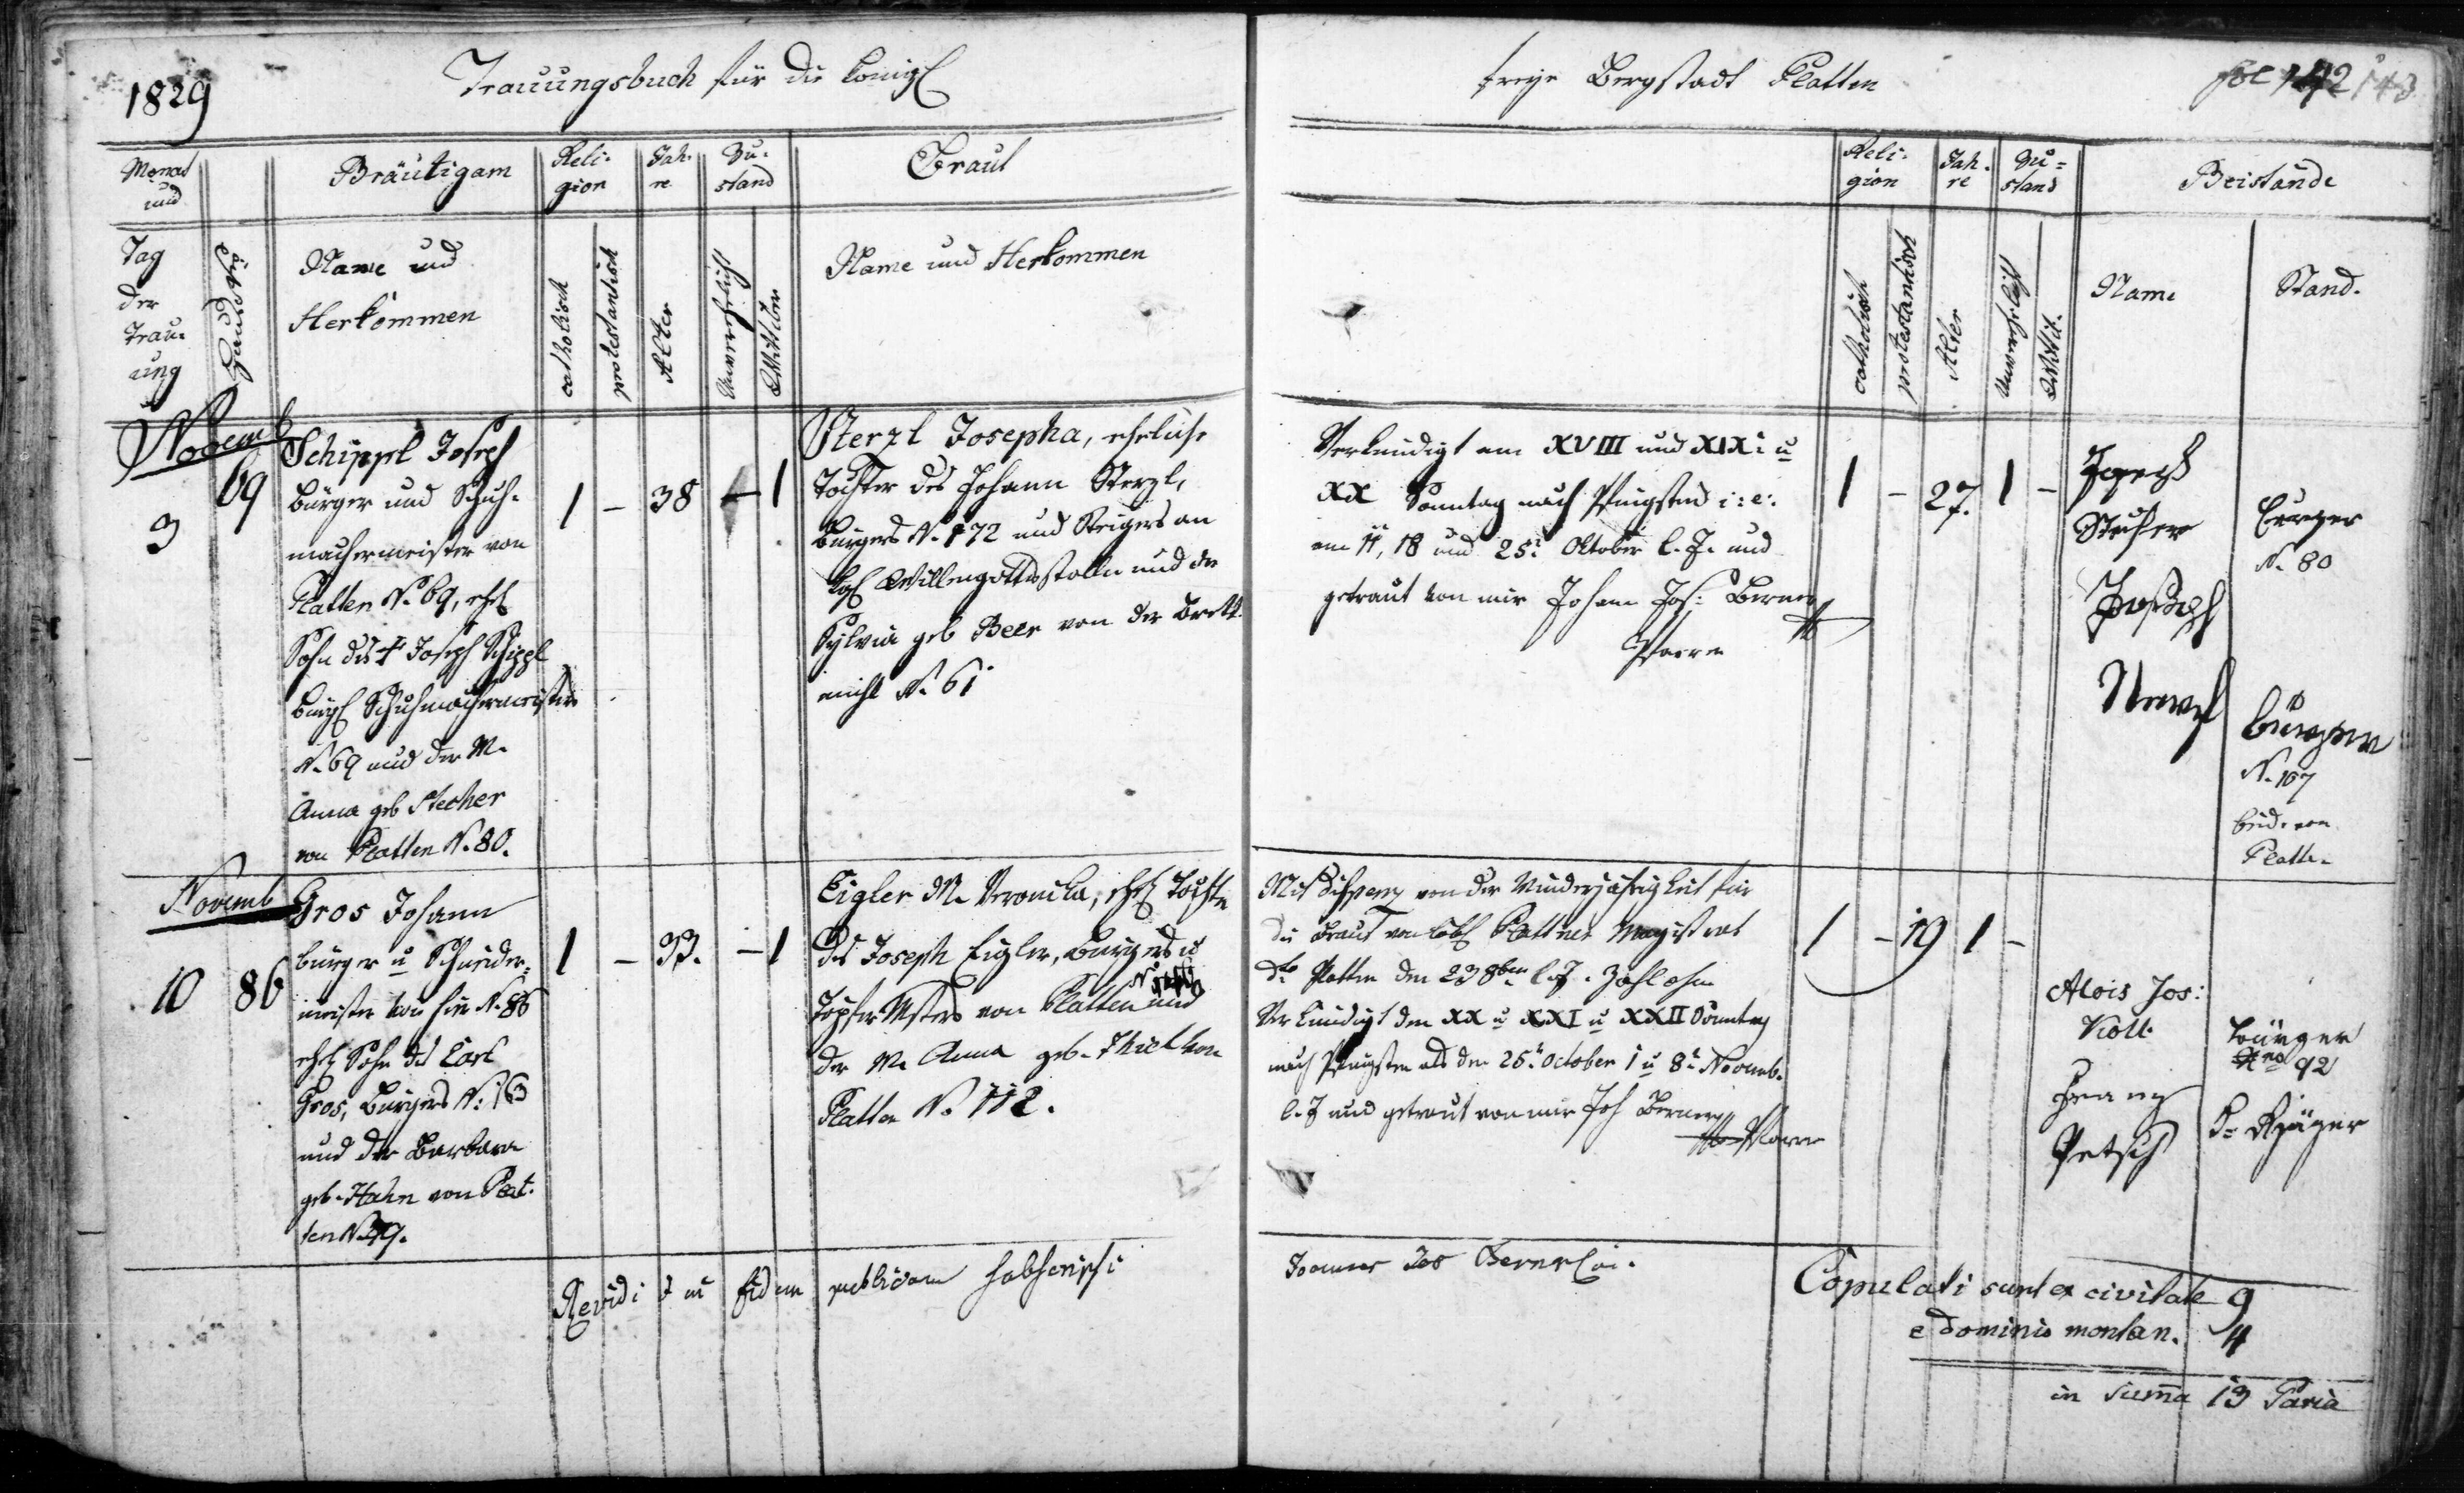 1829
Trauungsbuch für die königl
freye Bergstadt Platten
fol 142 143
Monat und
Tag
der
Trau-
ung
Haus Nro
Bräutigam
Name und
Herkommen
Reli-
gion
catholisch
protestantisch
Jah-
re
Alter
Zu-
stand
Unverehelicht
Wittiber
Braut
Name und Herkommen
Reli-
gion
catholisch
protestantisch
Jah-
re
Alter
Zu=
stand
Unverehelicht
Wittib.
Beistände
Name
Stand.
Novemb
3
69
Schippl Joseph
Bürger und Schuh-
machermeister von
Platten N. 69, ehel
Sohn des † Joseph Schippl
bürgl Schuhmachermeisters
N. 69 und der M.
Anna geb Stecher
von Platten N. 80.
1 - 38 - 1
Sterzl Josepha, eheliche
Tochter des Johann Sterzl,
Bürgers N. 172 und Steigers am
Willengottesstolln und der
Sylvia geb Beer von der Brett
mühl N. 61
Verkündigt am XVIII und XIX: u
XX Sonntag nach Pfingsten i: e:
am 11, 18 und 25: Oktober l. J. und
getraut von mir Johann Jos: Berner
Pfarrer
1 - 27. 1 -
Joseph
Stecher
Bürger
N. 80
Joseph
bürger
N. 107
beid. von
Platten
Novemb
10
86
Gros Johann
bürger u Schneider-
meister von hier N. 86
ehel Sohn des Carl
Gros, Bürgers N: 163
und der Barbara
geb. Hahn von Plat-
ten
1 - 33. - 1
Eigler M. Veronika, ehel Tochter
des Joseph Eigler, Bürgers u
von Platten und
der M. Anna geb. Thiel von
Platten N. 112.
Mit Dispenz von der Minderjährigkeit für
die Braut vom löbl Plattner Magistrat
dto Platten den 23 8ber l. J. Zahl ohne
Verkündigt den XX u XXI u XXII Sonntag
nach Pfingsten als den 25: October 1 u 8: Novemb.
l. J und getraut von mir Joh Berner
Pfarrer
1 - 19 1 -
Alois Jos:
Kolb
Bürger
Nro 92
Franz
Petsch
Revidi et in fidem publicam subscripsi
Joannes Jos Berner
Copulati sunt ex civitate 9
e dominio montan. 4
in Suma 13 Paria